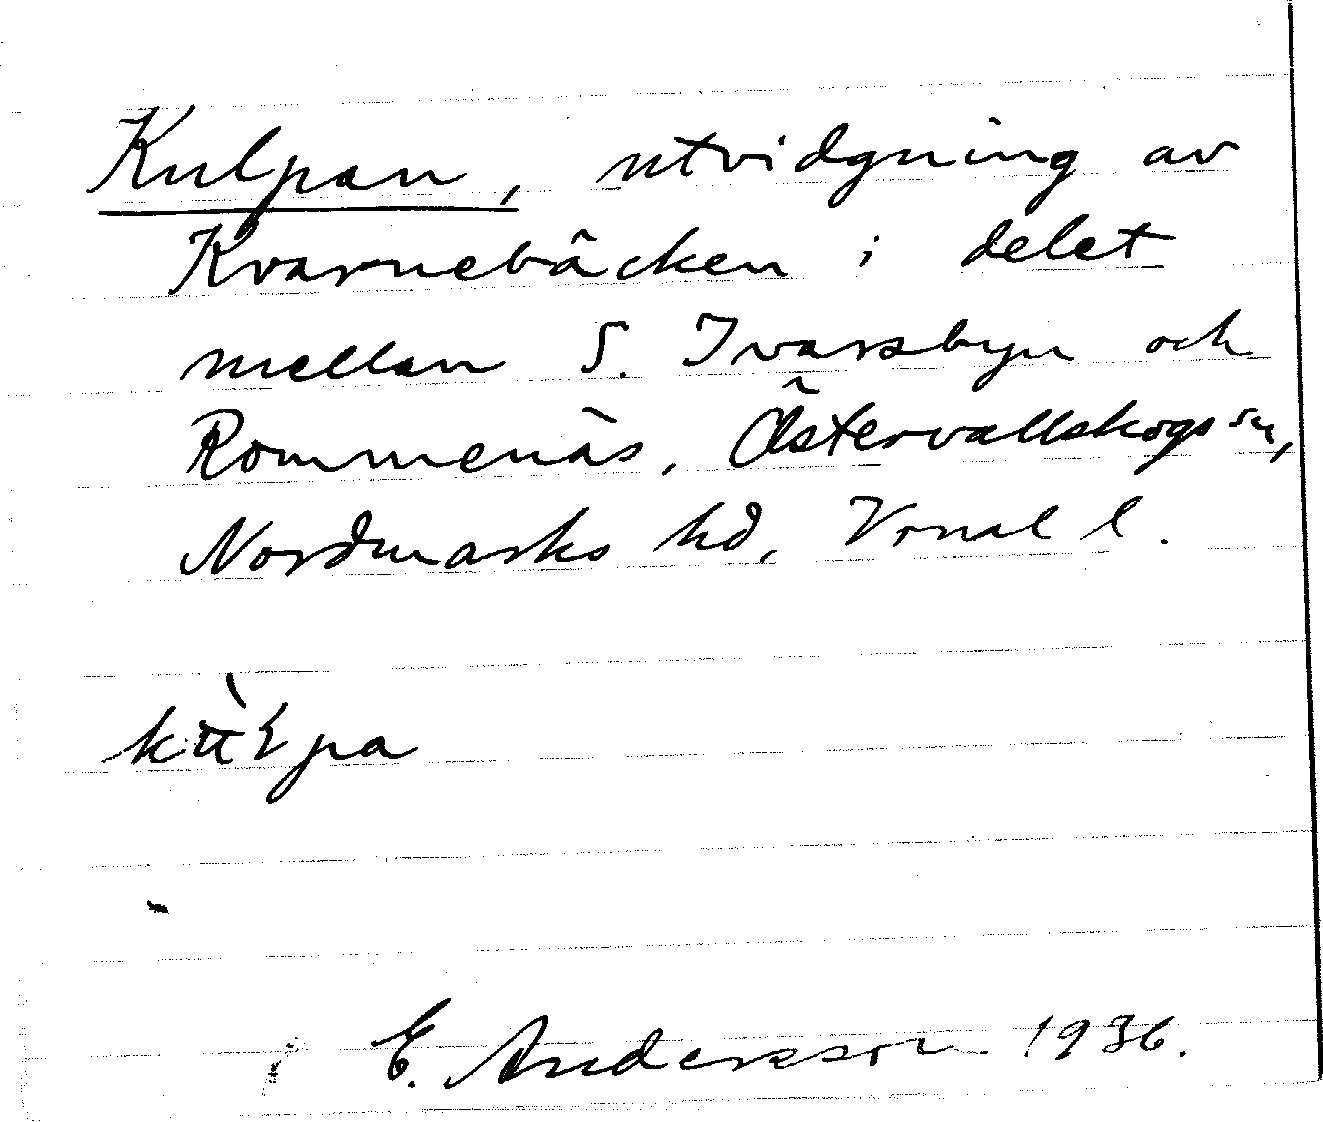 Kulpan, utvidgning av
Kvarnebäcken i delet
mellan S. Ivarsbyn och
Rommenäs, Östervallskogs sn,
Nordmarks hd, Vrml l.
E. Andersson 1936.